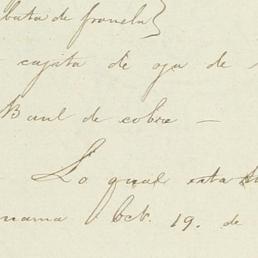 bata de franela}
cajita de oja de
Baul de cobre —
Lo qual esta
nama Oct. 19. de